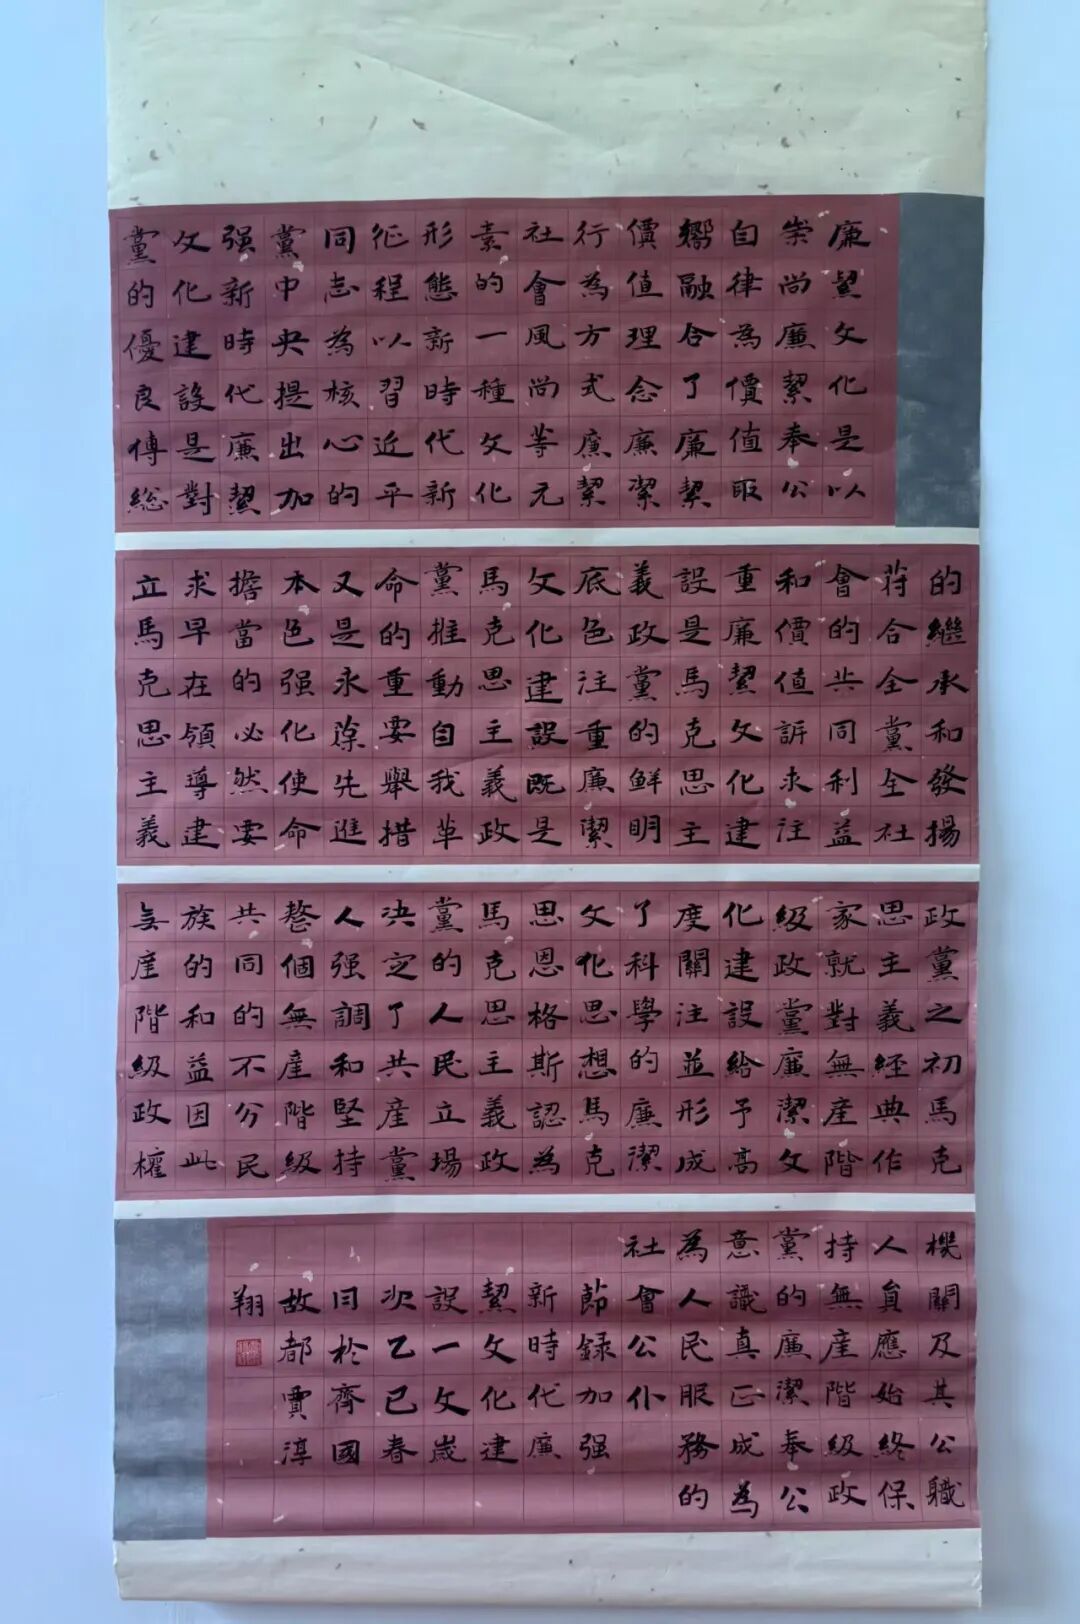 廉絜文化是以
崇尚廉絜奉公
自律為價值取
嚮融合了廉絜
價值理念廉潔
行為方式廉絜
社會風尚等元
素的一種文化
形態新時代新
征程以習近平
同志為核心的
黨中央提出加
强新時代廉絜
文化建設是對
黨的優良傳総
的繼承和發揚
苻合全黨全社
會的共同利益
和價值訴求注
重廉絜文化建
設是馬克思主
義政黨的鮮明
底色注重廉潔
文化建設既是
馬克思主義政
黨推動自我革
命的重要舉措
又是永葆先進
本色强化使命
擔當的必然要
求早在領導建
立馬克思主義
政黨之初馬克
思主義經典作
家就對無産階
級政黨廉潔文
化建設給予高
度關注並形成
了科學的廉潔
文化思想馬克
思恩格斯認為
馬克思主義政
黨的人民立場
决定了共産黨
人强調和堅持
整個無産階級
共同的不分民
族的和益因此
無産階級政權
機關及其公職
人員應始終保
持無産階級政
黨的廉潔奉公
意識真正成為
為人民服務的
社會公仆
節録加强
新時代廉
絜文化建
設一文歲
次乙巳春
日於齊國
故都賈淳
翔